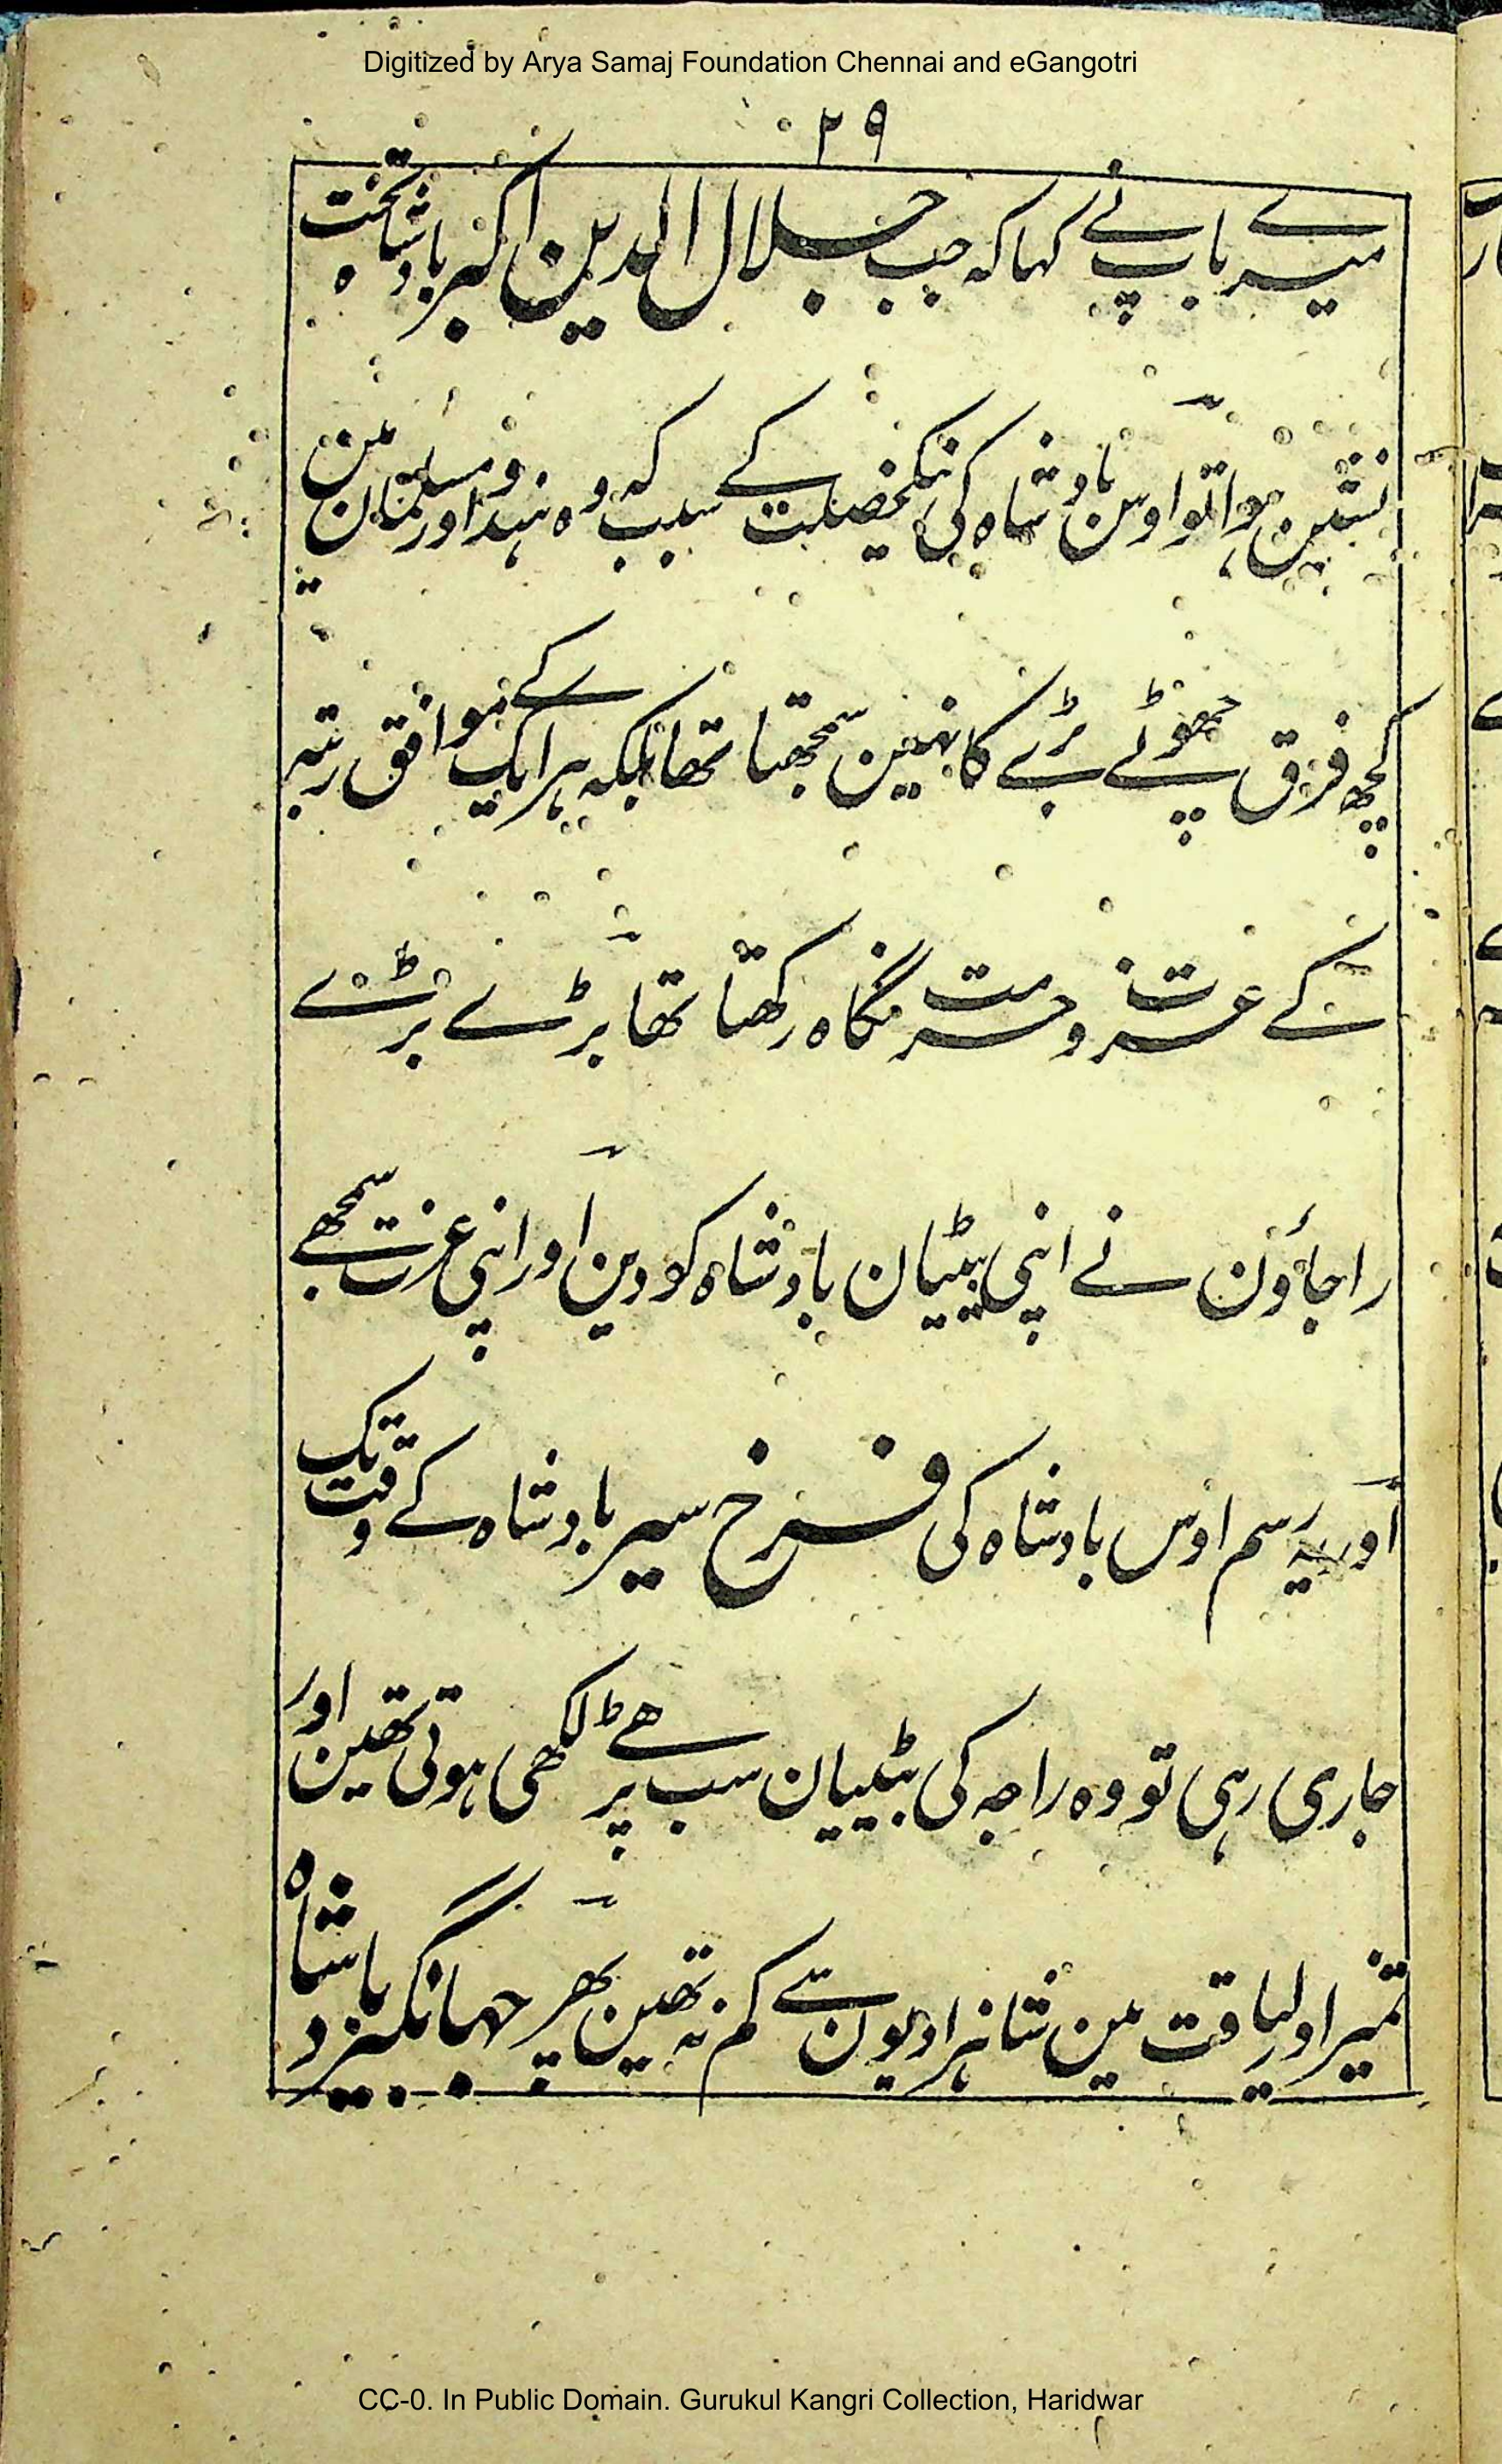 Digitized by Arya Samaj Foundation Chennai and eGangotri
٢٩
میرے باپ نے کہا کہ جب جلال الدین اکبر بادشاہ تخت
نشین ہوا تو اوس بادشاہ کی نیکخصلت کے سبب کہ وہ ہندو اور مسلمان مین
کچھ فرق چھوٹے بڑے کا نہین سمجھتا تھا بلکہ ہر ایک کے موافق رتبہ
کے عزت و حرمت نگاہ رکھتا تھا بڑے بڑے
راجاؤن نے اپنی بیٹیان بادشاہ کو دین اور اپنی عزت سمجھے
اور یہ رسم اوس بادشاہ کی فرخ سیر بادشاہ کے وقت تک
جاری رہی تو وہ راجہ کی بیٹیان سب پڑھے لکھی ہوتی تھین اور
تمیز اور لیاقت مین شاہزادیون سے کم نہ تھین پھر جہانگیر بادشاہ
CC-0. In Public Domain. Gurukul Kangri Collection, Haridwar